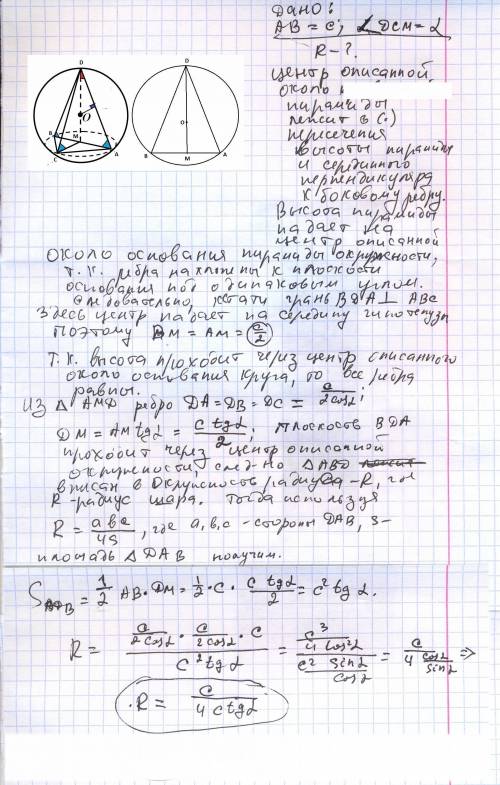 Дано:
AB = c; ∠ DCM = α
R - ?
Центр описанной
около
пирамиды
лежит в (.)
пересечения
высоты пирамиды
и серединного
перпендикуляра
к боковому ребру.
Высота пирамиды
падает на
центр описанной
около основания пирамиды окружности,
т.к. ребра наклонены к плоскости
основания под одинаковым углом.
Следовательно, кстати грань BDA ⊥ ABC
Здесь центр падает на середину гипотенузы
Поэтому BM = AM = c/2
Т.к. высота проходит через центр описанного
около основания круга, то все ребра
равны.
Из △ AMD ребро DA = DB = DC = c/2cosα;
DM = AM tgα = c tgα/2; плоскость BDA
проходит через центр описанной
окружности, след-но △ABD
вписан в окружность радиуса - R, где
R - радиус шара. Тогда используя
R = abc/4S, где a, b, c - стороны DAB, S-
площадь △ DAB получим.
S = 1/2 AB · DM = 1/2 · c · c tgα/2 = c² tg α.
R = c/2cosα · c/2cosα · c / c² tgα = c³/4cos²α / c² sinα/cosα = c / 4 cosα sinα ⇒
R = c / 4 ctgα
D
O
B
M
C
A
D
O
B
M
A